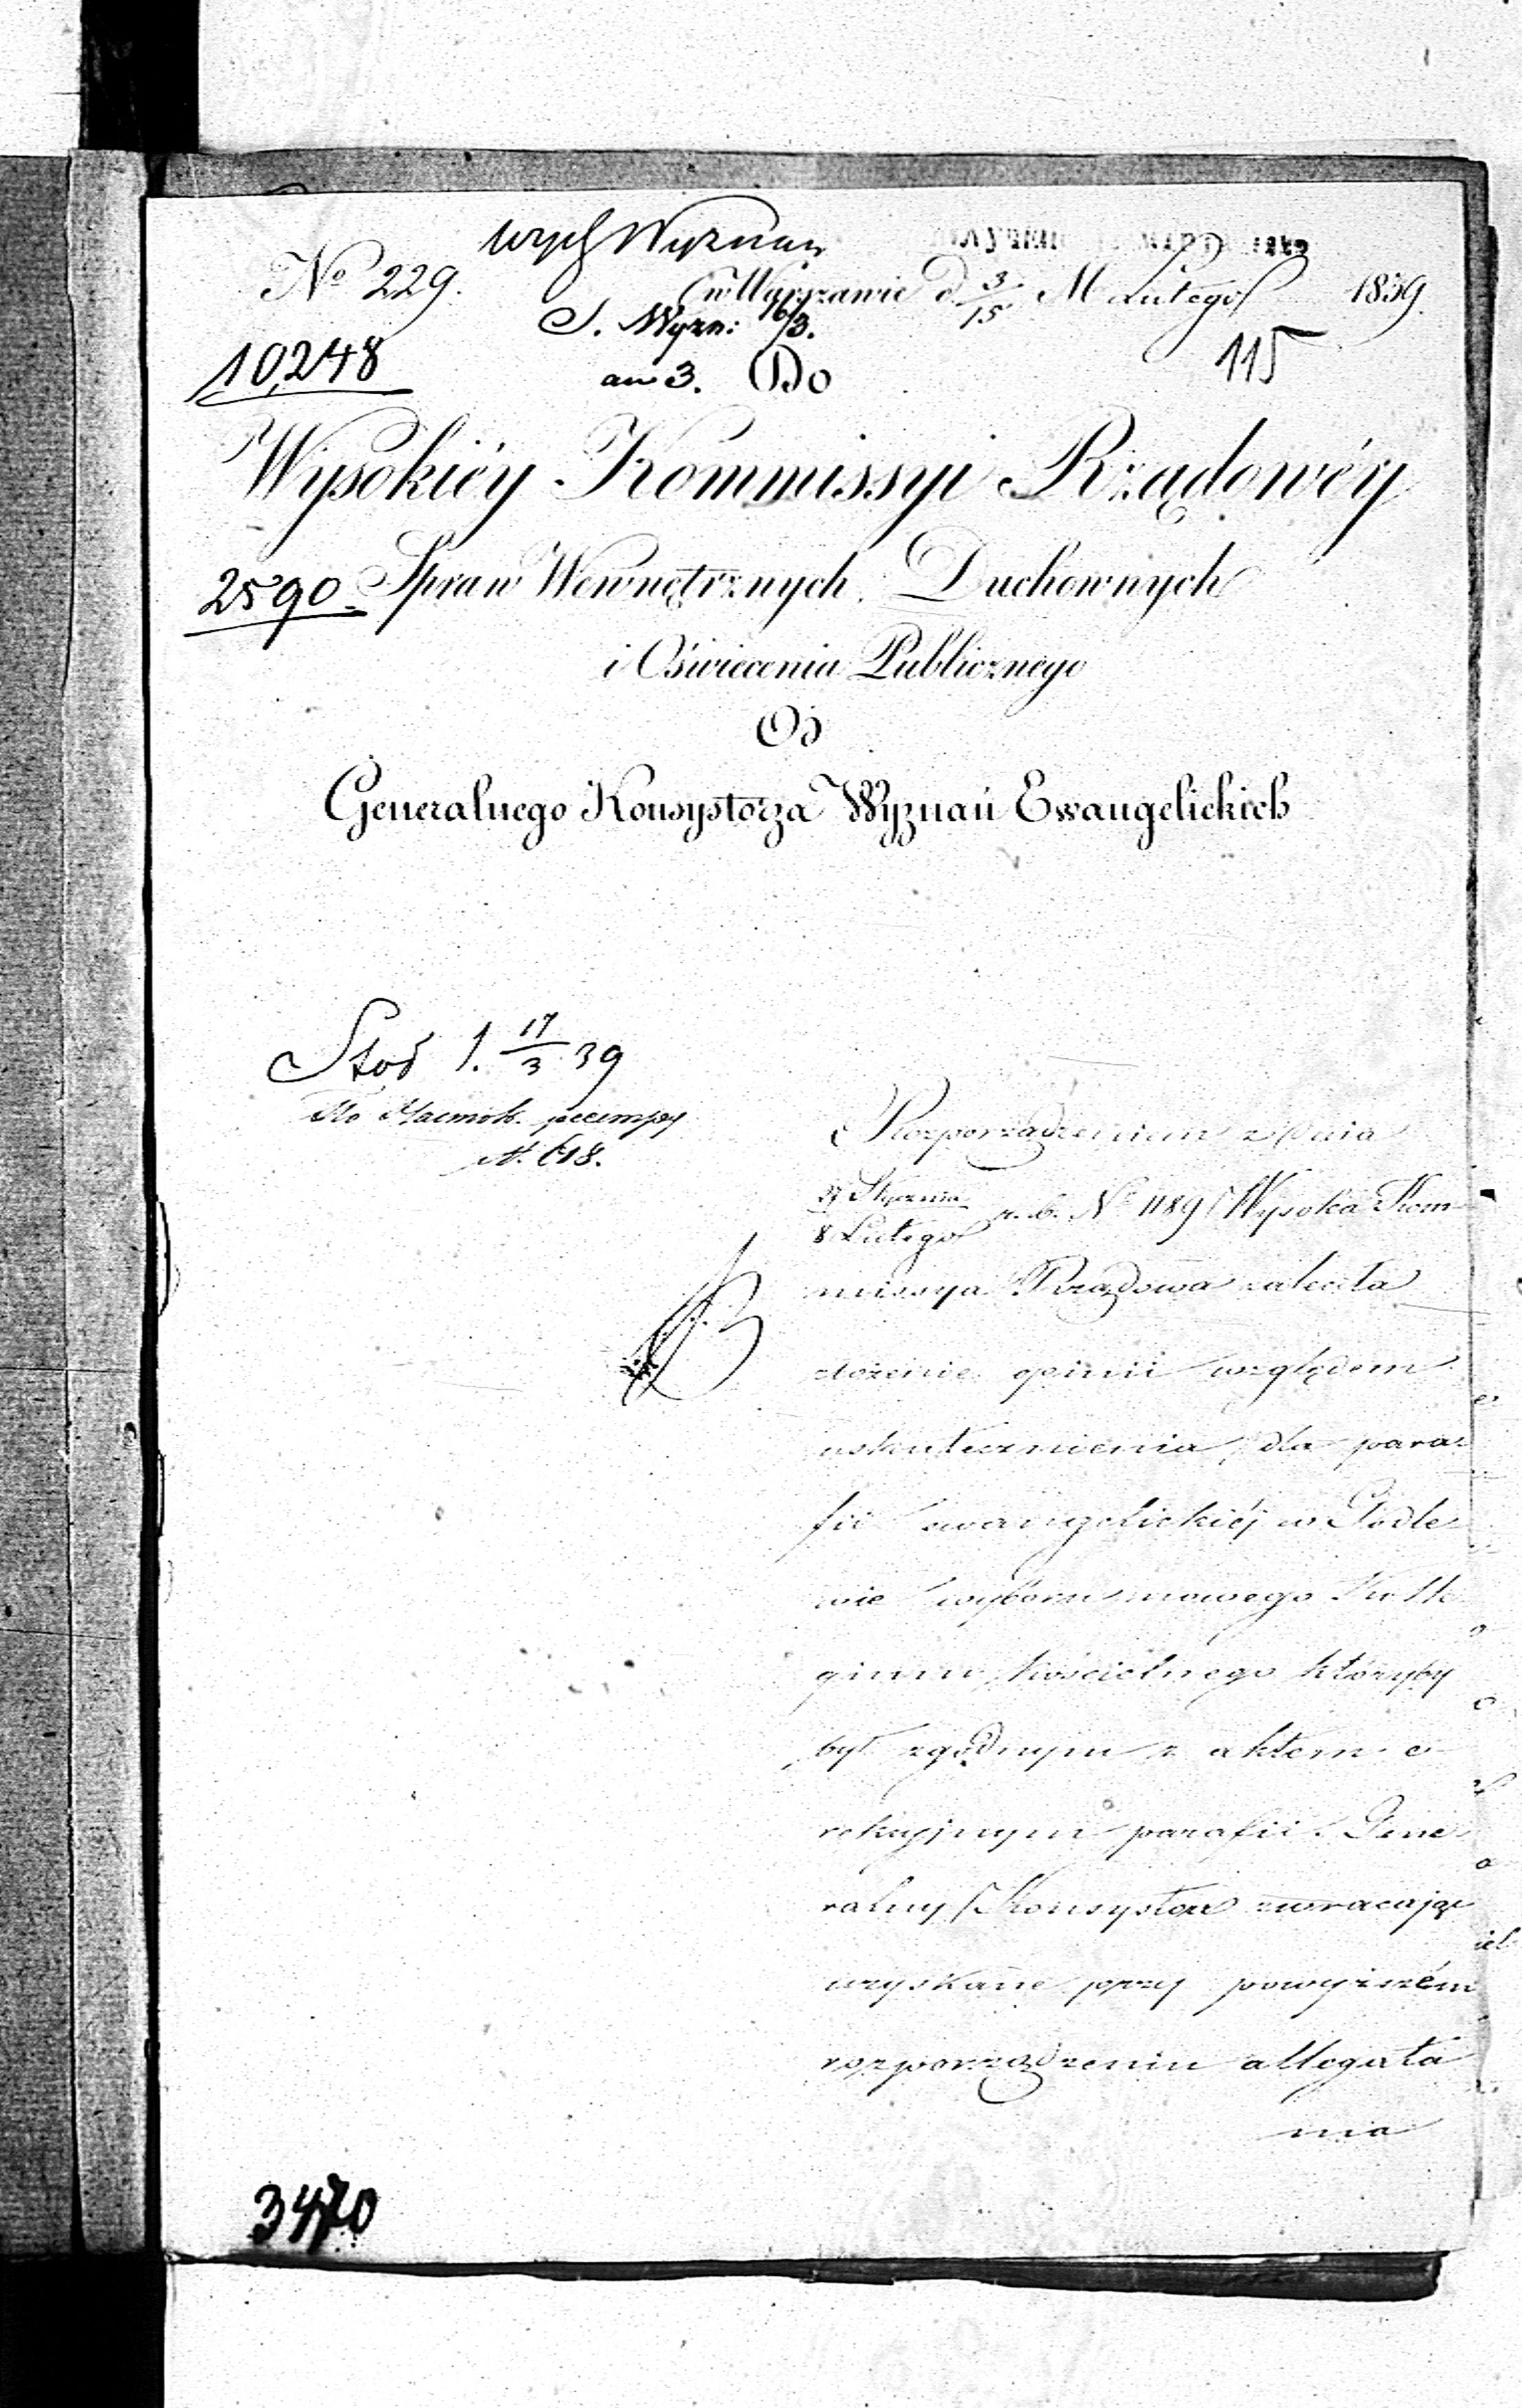 Wydz Wyznań
No 229.
w Warszawie d 3/15 M Lutego 1839.
S. Wyzn: 16/3.
10,248
115
an 3. Do
Wysokiéy Kommissyi Rządowéy
2590. Spraw Wewnętrznych Duchownych
i Oświecenia Publicznego
Od
Generalnego Konsystorza Wyznań Ewangelickich
17/3 39
По Настол. реестру
№ 618.
Rozporządzeniem z dnia
27 Stycznia / 8 Lutego r. b. Nr 1189 Wysoka Kom-
missya Rządowa zaleciła
złożenie opinii względem
uskutecznienia dla para-
fii ewangelickiéj w Godle-
wie wyboru nowego Kolle-
gium kościelnego któryby
był zgodnym z aktem e-
rekcyjnym parafii. Gene-
ralny Konsystorz zwracając
uzyskane przy powyższém
rozporządzeniu allegata
ma
3470